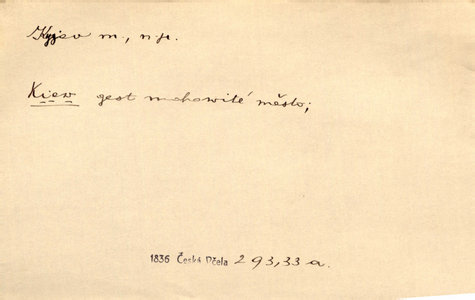 Kyjev m., n.pr.
Kiew gest mohowité město;
1836 Česká Včela 293,33 a.